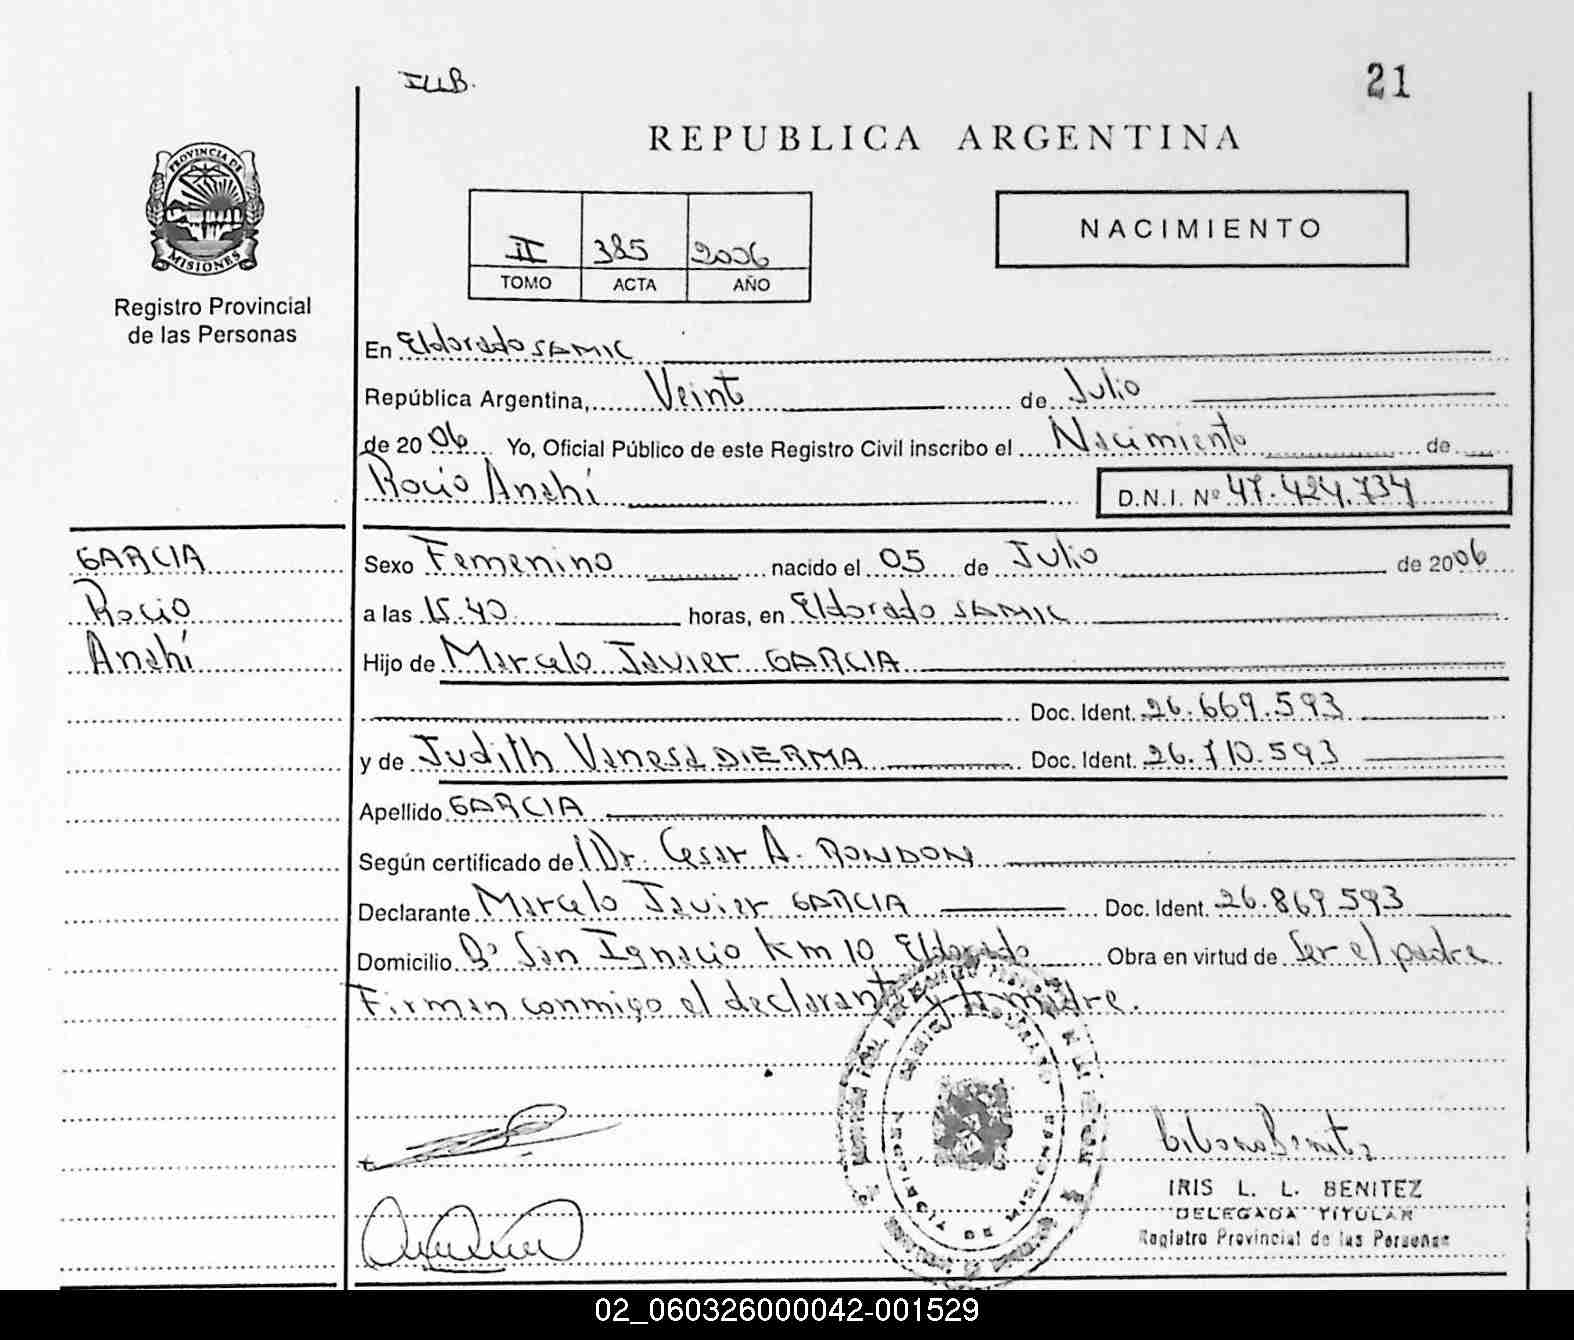 IUB.
21
REPUBLICA ARGENTINA
PROVINCIA DE
MISIONES
Registro Provincial
de las Personas
II 385 2006
TOMO ACTA AÑO
NACIMIENTO
En Eldorado SAMIC
República Argentina, Veint de Julio
de 2006 Yo, Oficial Público de este Registro Civil inscribo el Nacimiento de
Rocio Anahí D.N.I. Nº 47.424.734
GARCIA
Rocio
Anahí
Sexo Femenino nacido el 05 de Julio de 2006
a las 15.40 horas, en Eldorado SAMIC
Hijo de Marcelo Javier GARCIA
Doc. Ident. 26.669.593
y de Judith Vanesa DIERMA Doc. Ident. 26.710.593
Apellido GARCIA
Según certificado de Dr. Cesar A. RONDON
Declarante Marcelo Javier GARCIA Doc. Ident. 26.869.593
Domicilio Bº San Ignacio Km 10 Eldorado Obra en virtud de Ser el padre
Firman conmigo el declarante y la madre.
PROVINCIA DE MISIONES
IRIS L. L. BENITEZ
DELEGADA TITULAR
Registro Provincial de las Personas
02_060326000042-001529